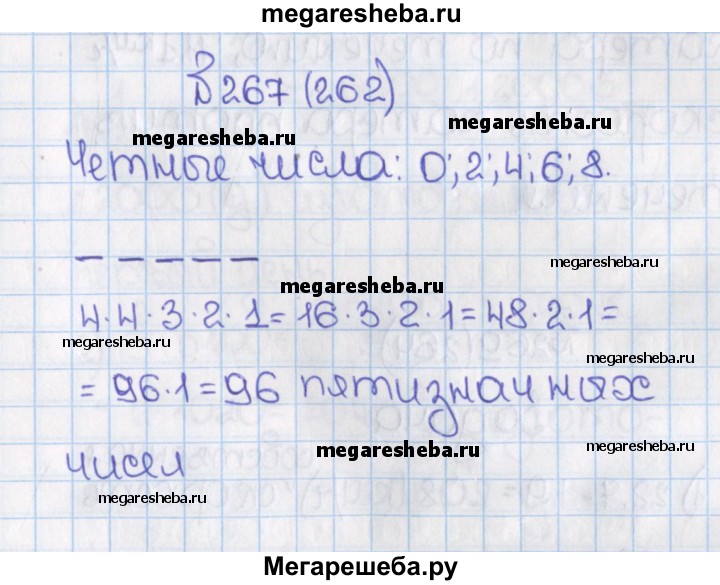 megaresheba.ru
№267 (262)
megaresheba.ru
megaresheba.ru
Четные числа: 0; 2; 4; 6; 8.
_ _ _ _ _
megaresheba.ru
megaresheba.ru
4·4·3·2·1=16·3·2·1=48·2·1=
megaresheba.ru
megaresheba.ru
=96·1=96 пятизначных
чисел
megaresheba.ru
megaresheba.ru
Мегарешеба.ру